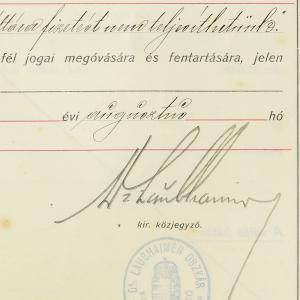 fizetést nem teljesíthetünk."
fél jogai megóvására és fentartására, jelen
évi augusztus hó
Dr Laubhaimer
kir. közjegyző.
Dr. LAUBHAIMER OSZKÁR